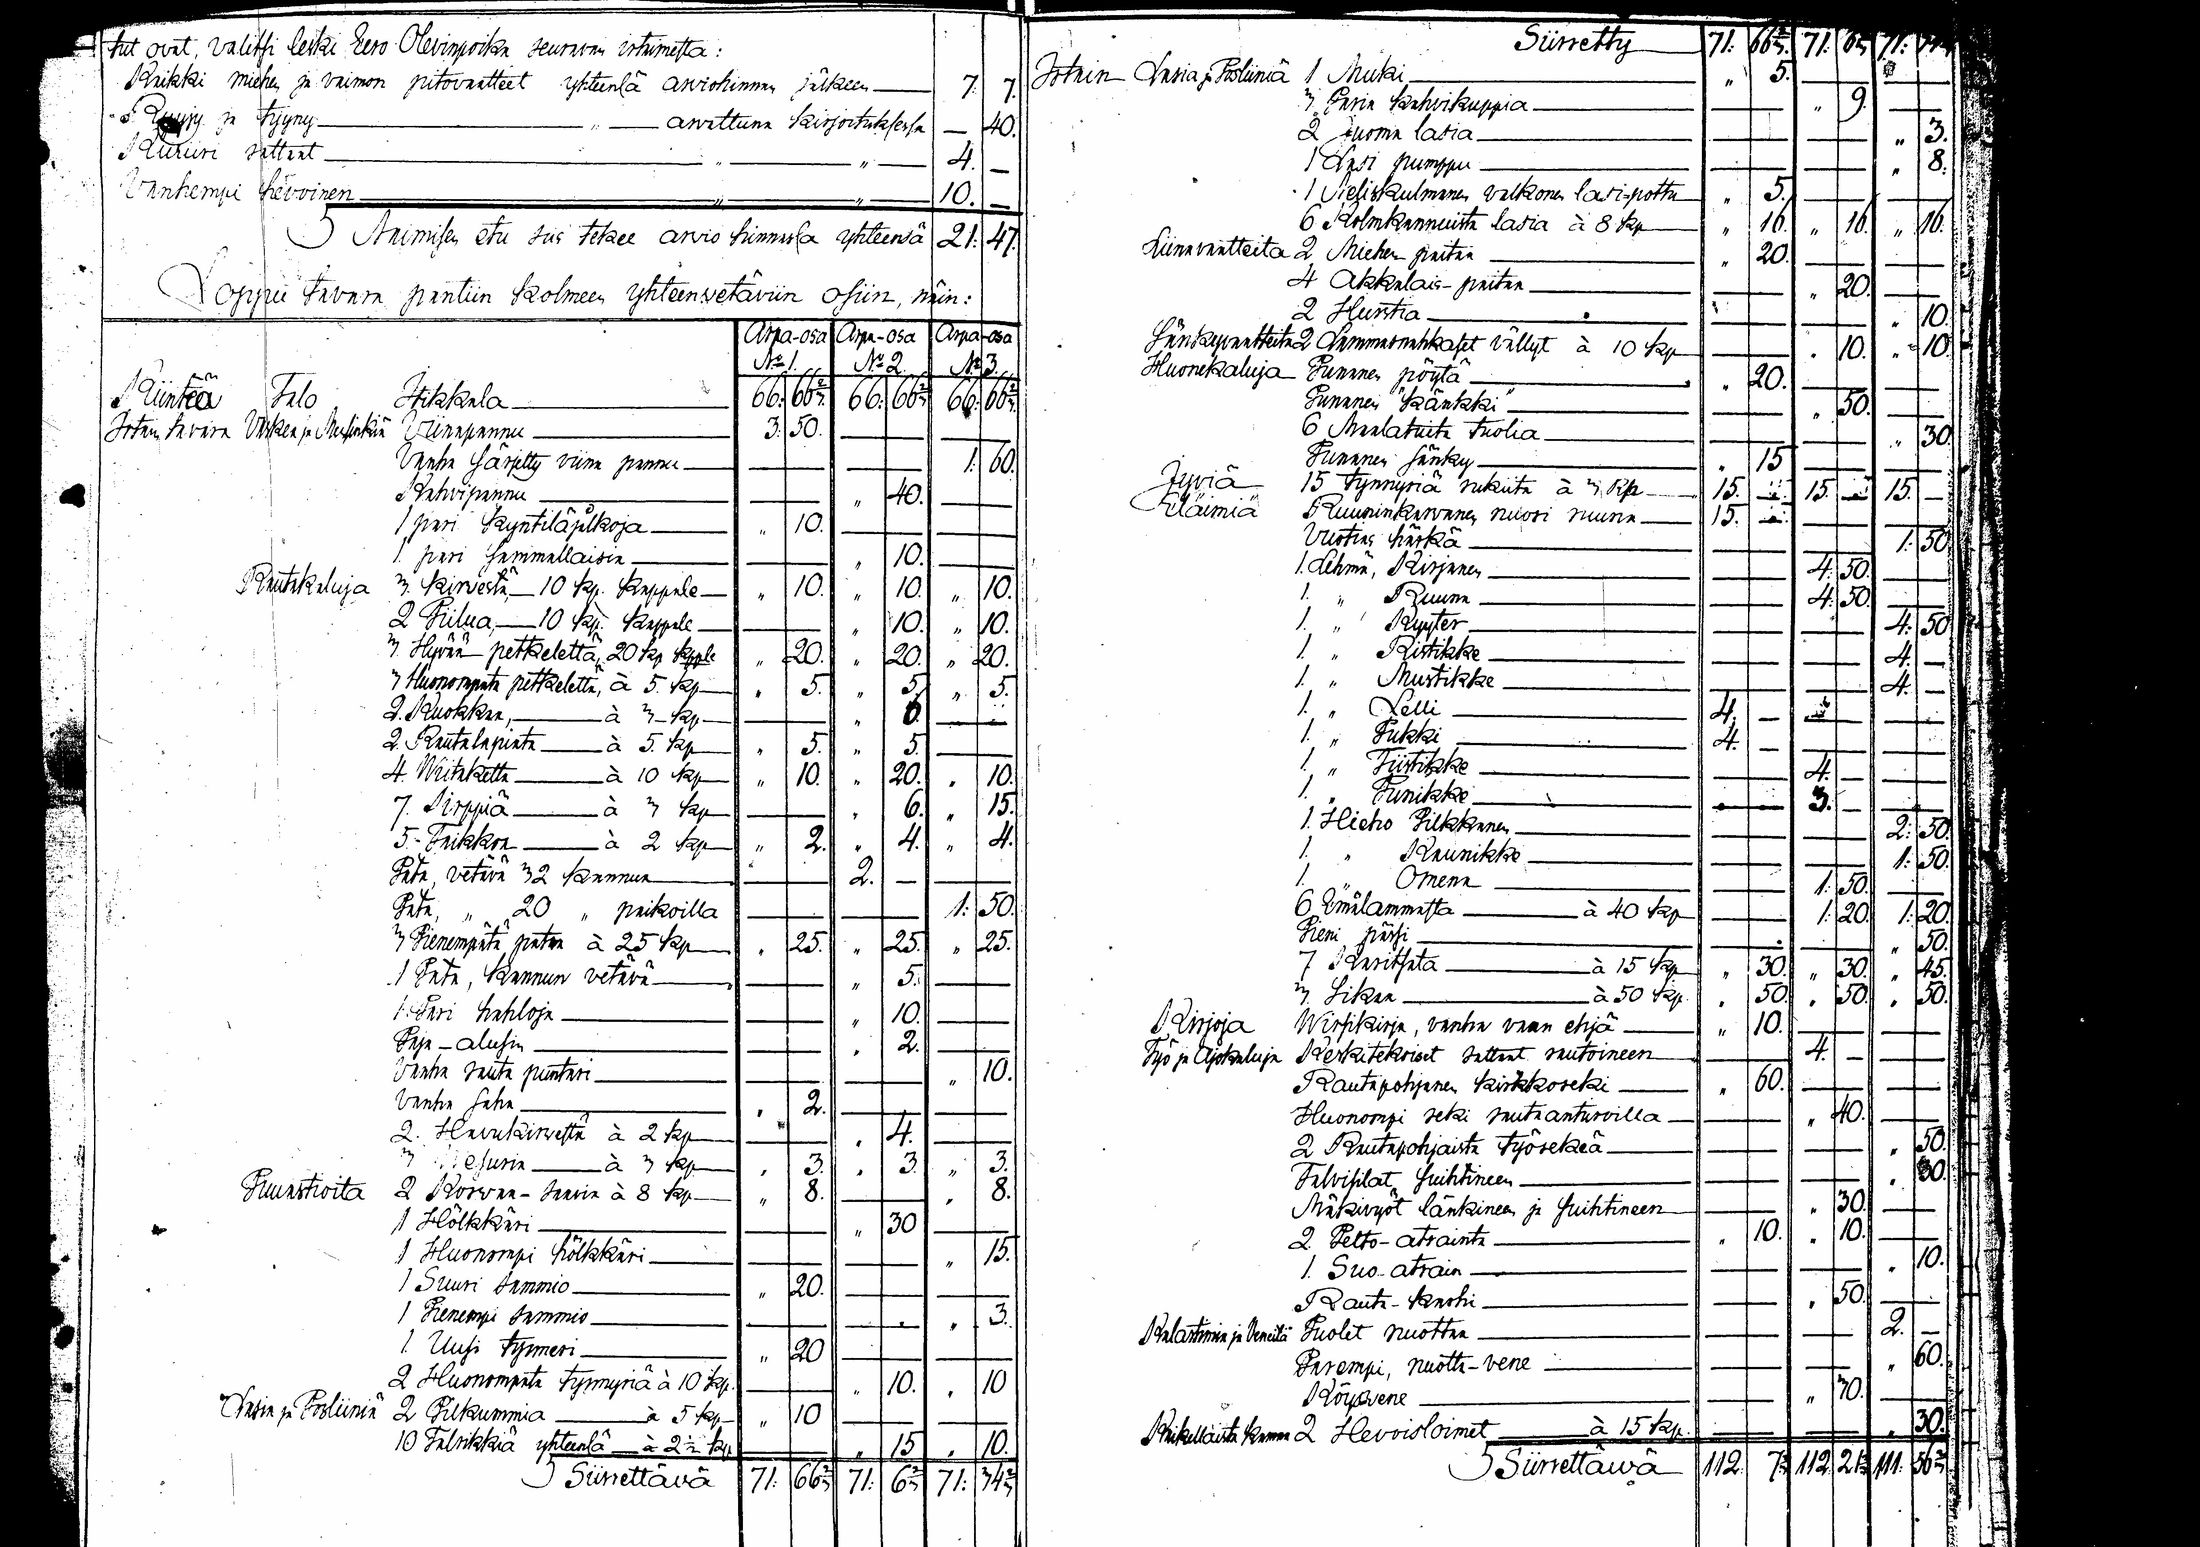 tut ovat, valitsi leski Eero Olevinpoika seuraavan irtaimesta:
Kaikki miehen ja vaimon pitovaatteet yhteensä arviohinnan jälkeen — 7. 7.
Ryyjy ja tyyny — „ — arvattuna kirjoituksessa — 40.
Kuriiri rattaat — „ — „ — 4. —
Vanhempi hevoinen — „ — „ — 10. —
S Naimisen etu siis tekee arvio hinnassa yhteensä 21: 47.
Loppu tavara pantiin kolmeen yhteenvetäviin osiin, näin:
Arpa-osa Arpa-osa Arpa-osa
No 1. No 2. No 3.
Kiinteä Talo Itikkala — 66: 66⅔ 66: 66⅔ 66: 66⅔
Irtain tavara Vasken ja Messinkiä Viinapannu — 3: 50. — —
Vanha särjetty viina pannu — — — 1: 60.
Kahvipannu — — „ 40. —
1 pari kyntiläjalkoja — „ 10. — —
1. pari hammallaisia — — „ 10. —
Rautakaluja 3. kirvestä, — 10 kp. kappale — „ 10. „ 10. „ 10.
2 Piilua, — 10 kp. kappale — — „ 10. „ 10.
3 Hyvää petkelettä, 20 kp kpple „ 20. „ 20. „ 20.
3 Huonompata petkelettä, à 5. kp — „ 5. „ 5. „ 5.
2. Kuokkaa, — à 3 kp — — „ 6. —
2. Rautalapiata — à 5. kp — „ 5. „ 5. —
4. Wiitaketta — à 10 kp — „ 10. „ 20. „ 10.
7. Sirppiä — à 3 kp — — „ 6. „ 15.
5. Taikkoa — à 2 kp — „ 2. „ 4. „ 4.
Pata, vetävä 32 kannua — — 2. — —
Pata, „ 20 „ paikoilla — — 1: 50.
3 Pienempätä pataa à 25 kp — „ 25. „ 25. „ 25.
1 Pata, kannun vetävä — — „ 5. —
1. Pari hahloja — — „ 10. —
Paja-alusin — — „ 2. —
Vanha rauta puntari — — — „ 10.
Vanha saha — „ 2. — —
2. Havukirvestä à 2 kp — — „ 4. —
3 — à 3 kp — „ 3. „ 3. „ 3.
Puuastioita 2 Korvaa-saavia à 8 kp — „ 8. — „ 8.
1 Hölkkäri — — „ 30 —
1 Huonompi hölkkäri — — — „ 15.
1 Suuri sammio — „ 20. — —
1 Pienempi sammio — — — „ 3.
1. Uusi tynneri — „ 20 — —
2 Huonompata tynnyriä à 10 kp. — „ 10. „ 10
Lasia ja Posliiniä 2 Pilkummia — à 5 kp — „ 10 — —
10 Talrikkiä yhteensä — à 2½ kp — „ 15 „ 10.
S Siirrettävä 71: 66⅔ 71: 6⅔ 71: 34⅔
Siirretty — 71: 66⅔ 71: 6⅔ 71:
Irtain Lasia ja Posliiniä 1 Muki — „ 5. — —
3 Paria kahvikuppia — — „ 9. —
2 juoma lasia — — — „ 3.
1 Lasi pumppu — — — „ 8.
1 Neliskulmanen valkonen lasi-pottu „ 5. — —
6 Kolmkanneista lasia à 8 kp — „ 16. „ 16. „ 16.
Liinavaatteita 2 Miehen paitaa — „ 20. — —
4 Akkalais-paitaa — — „ 20. —
2 Hurstia — — — „ 10.
Sänkyvaatteita 2 Lammasnahkaset vällyt à 10 kp — „ 10. „ 10.
Huonekaluja Punanen pöytä — „ 20. — —
Punanen "känkki" — — „ 50. —
6 Maalatuita tuolia — — — „ 30.
Punanen sänky — „ 15 — —
Jyviä 15 tynnyriä rukiita à 3 Rp — 15. — 15. — 15. —
Eläimiä Ruuninkarvanen nuori ruuna — 15. — — —
Vuotias härkä — — — 1: 50
1. Lehmä, Kirjanen — — 4: 50. —
1. „ Ruuna — — 4: 50. —
1. „ Kyyter — — — 4: 50
1. „ Ristikke — — — 4. —
1. „ Mustikke — — — 4. —
1. „ Lelli — 4. — — —
1. „ Pukki — 4. — — —
1. „ Tiistikke — — 4. — —
1. „ Punikke — — 3. — —
1. Hieho Pilkkanen — — — 2: 50.
1. „ Kaunikke — — — 1: 50.
1. „ Omena — — 1: 50. —
6 Emälammasta — à 40 kp — 1: 20. 1: 20.
Pieni pässi — — — „ 50.
7 Karitsata — à 15 kp „ 30. „ 30. „ 45.
3. Sikaa — à 50 kp. „ 50. „ 50. „ 50.
Kirjoja Wirsikirja, vanha vaan ehjä — „ 10. — —
Työ ja Ajokaluja Keskitekoiset rattaat rautoineen — — 4. — —
Rautapohjanen kirkkoreki — „ 60. — —
Huonompi reki rautaanturoilla — — „ 40. —
2 Rautapohjaista työrekeä — — — „ 50.
Talvisilat suihtineen — — — „ 30.
Mäkivyöt länkineen ja suihtineen — — „ 30. —
2 Pelto-atrainta — „ 10. „ 10. —
1. Suo-atrain — — — „ 10.
Rauta-kanki — — „ 50. —
Kalastimia ja Veneitä Puolet nuottaa — — — 2. —
Parempi, nuotta-vene — — — „ 60.
Köysvene — — „ 30. —
Kaikellaista kamaa 2 Hevoisloimet — à 15 kp. — — „ 30.
S Siirrettävä 112. 7⅔ 112. 21⅔ 111: 56⅔